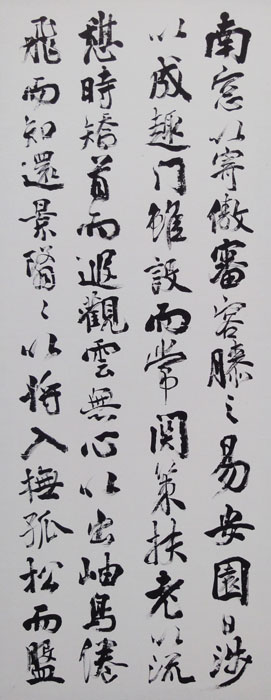 南窓以寄傲審容膝之易安園日涉
以成趣門雖設而常関策扶老以流
憩時矯首而遐觀雲無心以出岫鳥倦
飛而知還景翳々以将入撫孤松而盤